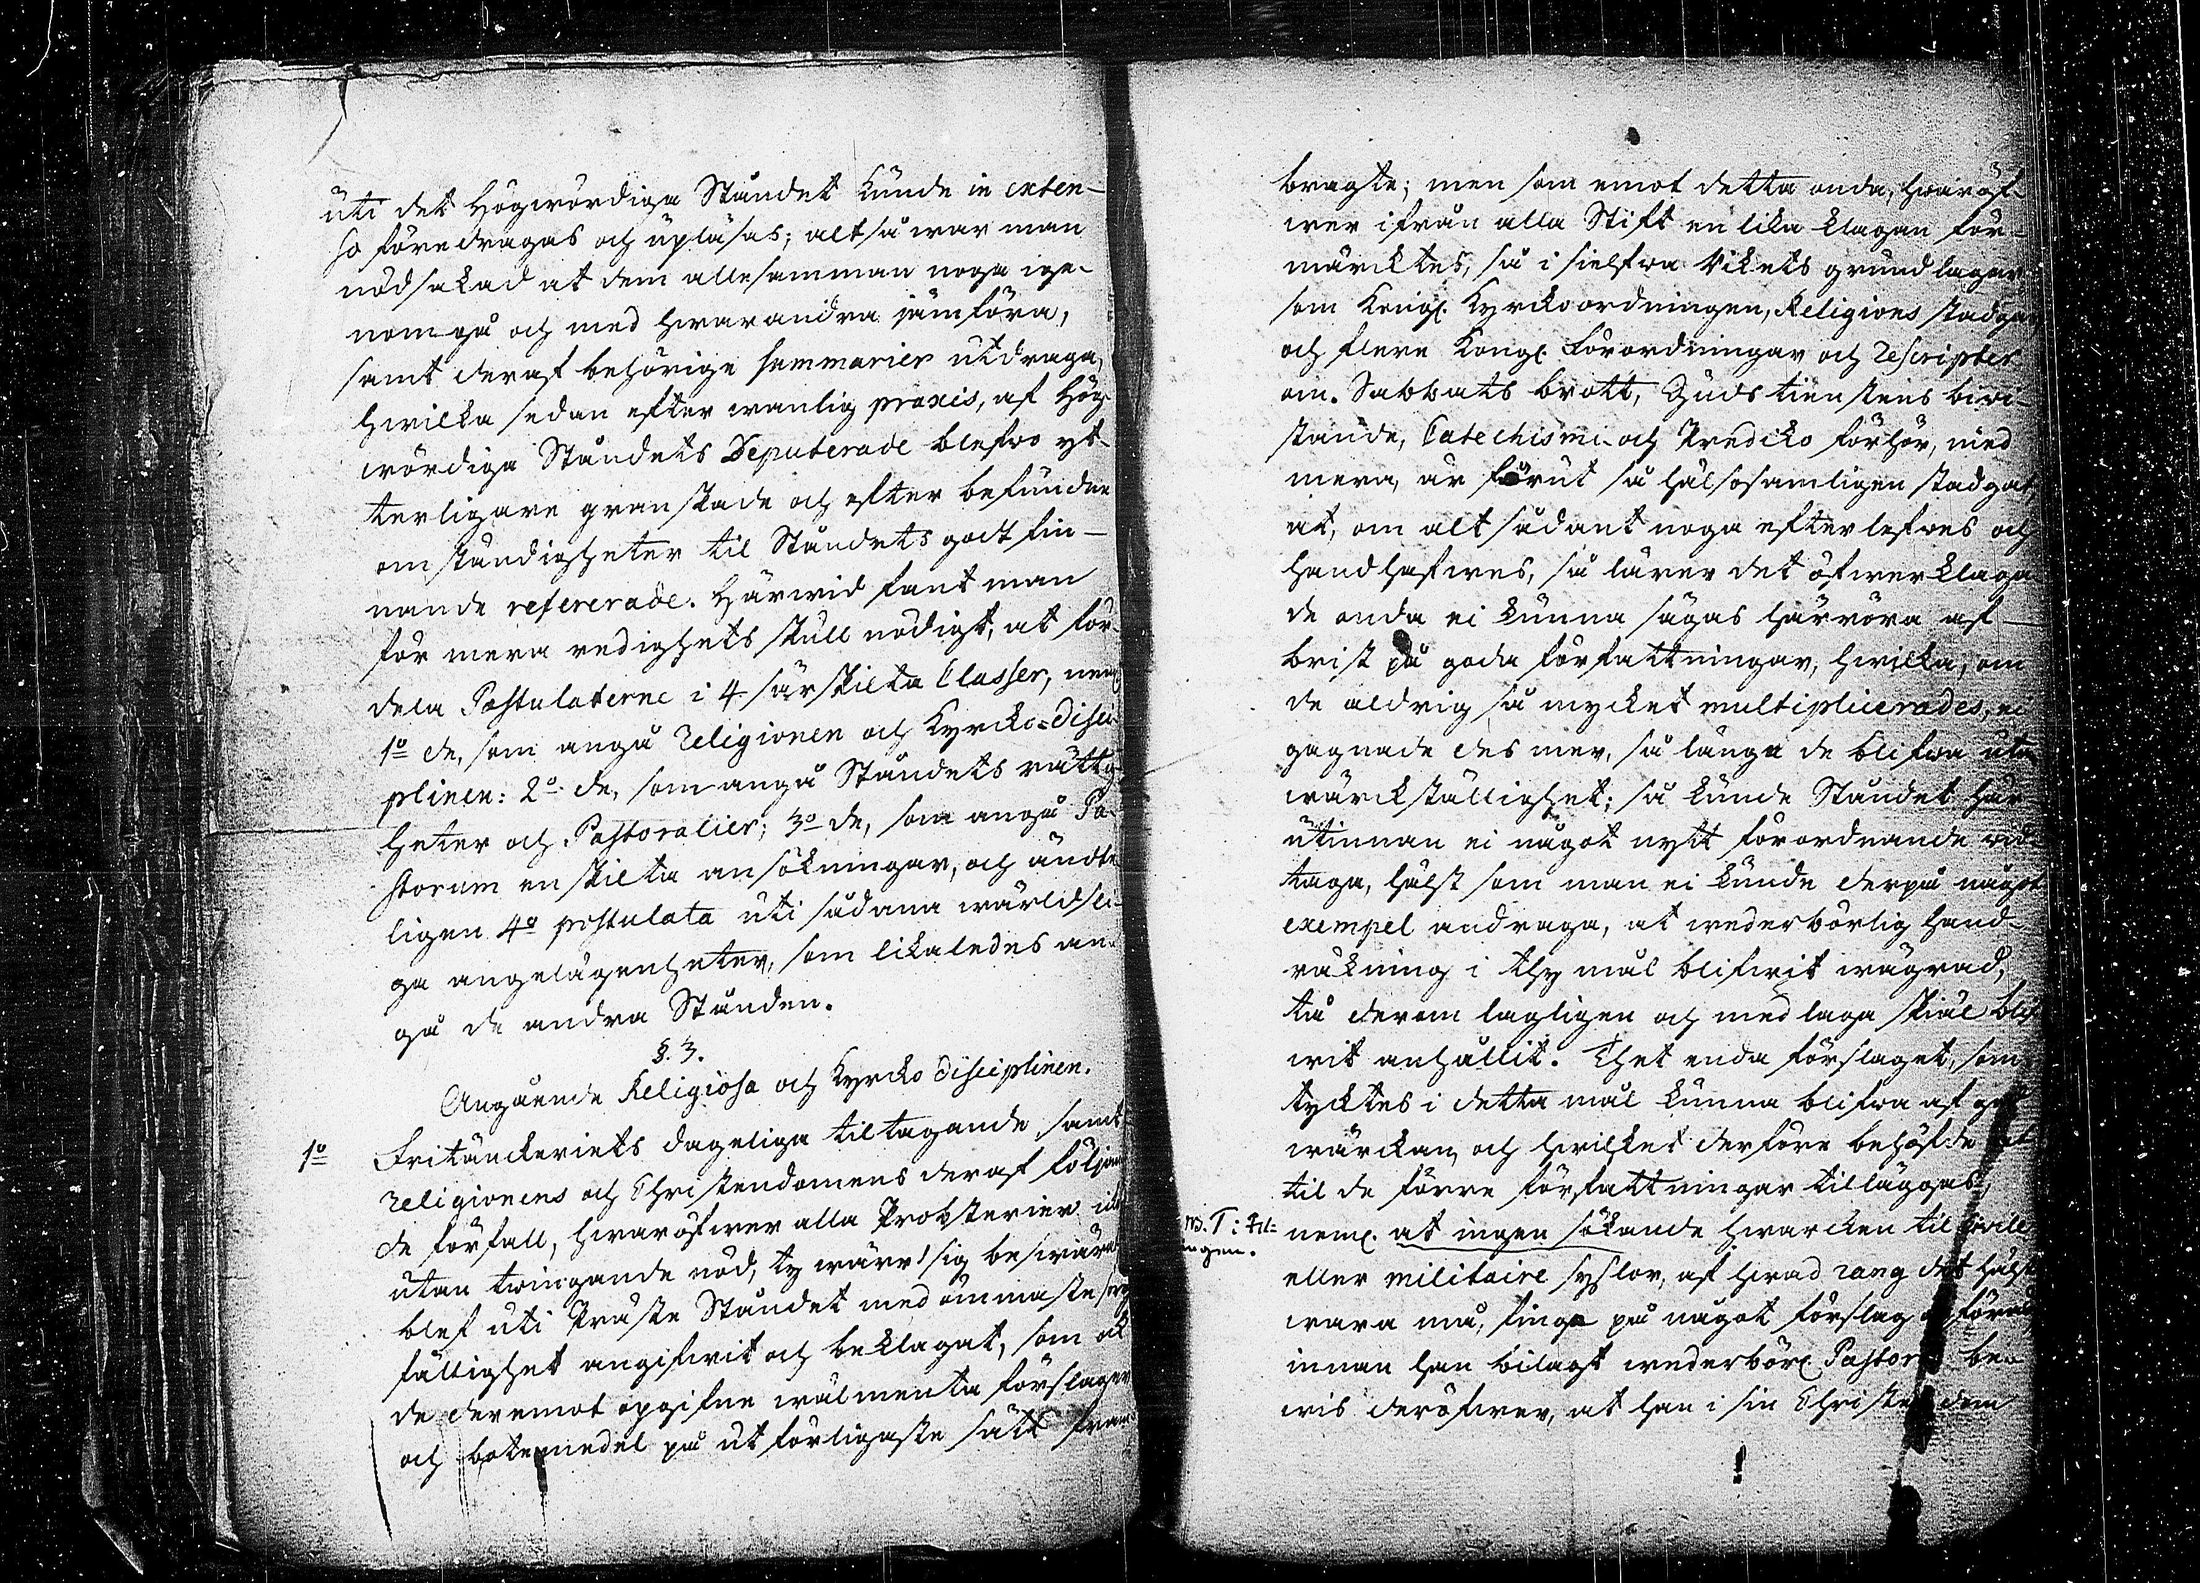 uti det Högwördiga Ståndet kunde in exten-
so föredragas och upläsas; altså war man
nödsakad at dem allesamman noga ige-
nomgå och med hwarandra jämföra,
samt deraf behörige summarier utdraga,
hwilka sedan efter wanlig praxis, af Hög-
wördiga Ståndets Deputerade blefwo yt-
terligare granskade och efter befundne
omständigheter til Ståndets godtfin-
nande refererade. Härwid fant man
för mera redighets skull nödigt, at för-
dela Postulaterne i 4 särskilta Classer, neml.
1º de, som angå Religionen och Kyrcko-disci-
plinen: 2º de, som angå Ståndets rättig-
heter och Pastoralier; 3º de, som angå Pa-
storum enskilta ansökningar, och ändte-
ligen 4º postulata uti sådana wärldsli-
ga angelägenheter, som likaledes an-
gå de andra Stånden.
§. 3.
Angående Religiosa och Kyrcko disciplinen.
1º Fritänckeriets dageliga tiltagande, samt
Religionens och Christendomens deraf följan-
de förfall, hwaröfwer alla Probsterier
utan twingande nöd, ty wärr! sig beswära
blef uti Präste Ståndet med ömmaste sorg-
fällighet angifwit och beklagat, som ok
de deremot opgifne wälmenta förslager
och botemedel på utförligaste sätt fram-
3
bragte; men som emot detta onda, hwaröf-
wer ifrån alla Stift en lika klagan för-
märcktes, så i sielfwa Rikets grundlagar
som Kongl. Kyrckoordningen, Religions stadgar
och flere Kongl. Förordningar och Rescripter
om Sabbats brott, Guds tienstens biwi-
stande, Catechismi- och Predicko förhör, med
mera, är förut så hälsosamligen stadgat
at, om alt sådant noga efterlefwes och
handhafwes, så lärer det öfwerklaga
de onda ei kunna sägas härröra af
brist på goda författningar, hwilka, om
de aldrig så mycket multiplicerades, ei
gagnade des mer, så länge de blifwa utan
wärckställighet; så kunde Ståndet här-
utinnan ei något nytt förordnande wid-
taga, hälst som man ei kunde derpå något
exempel andraga, at wederbörlig hand-
räkning i thy mål blifwit wägrad,
tå derom lagligen och med laga skiäl blif-
wit anhållit. Thet enda förslaget, som
tycktes i detta mål kunna blifwa af god
wärckan, och hwilket derföre behöfde at
til de förre författningar tilläggas,
neml. at ingen sökande hwarcken til Civile
eller militaire syslor, af hwad rang det hälst
wara må, finge på något förslag opföras
innan han bilagt wederbörl. Pastors be-
wis deröfwer, at han i sin Christendom